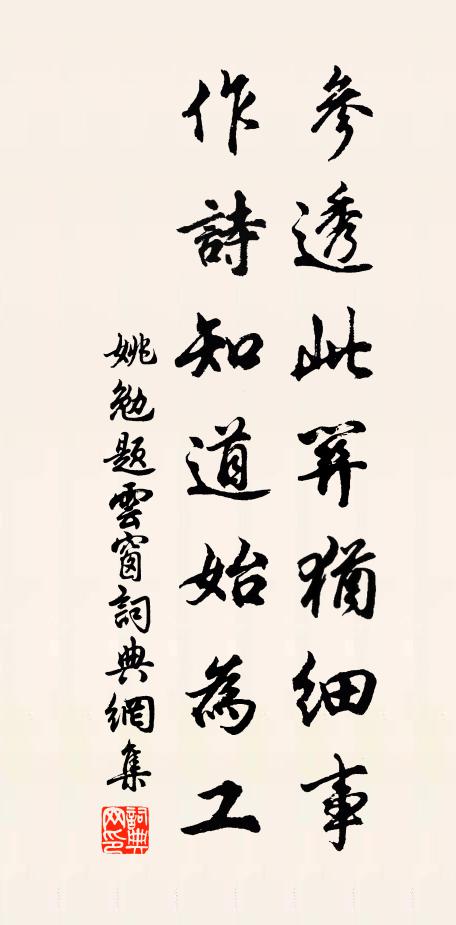 參透此關猶細事
作詩知道始為工
姚勉題雲窗詞典網集
詞典網印